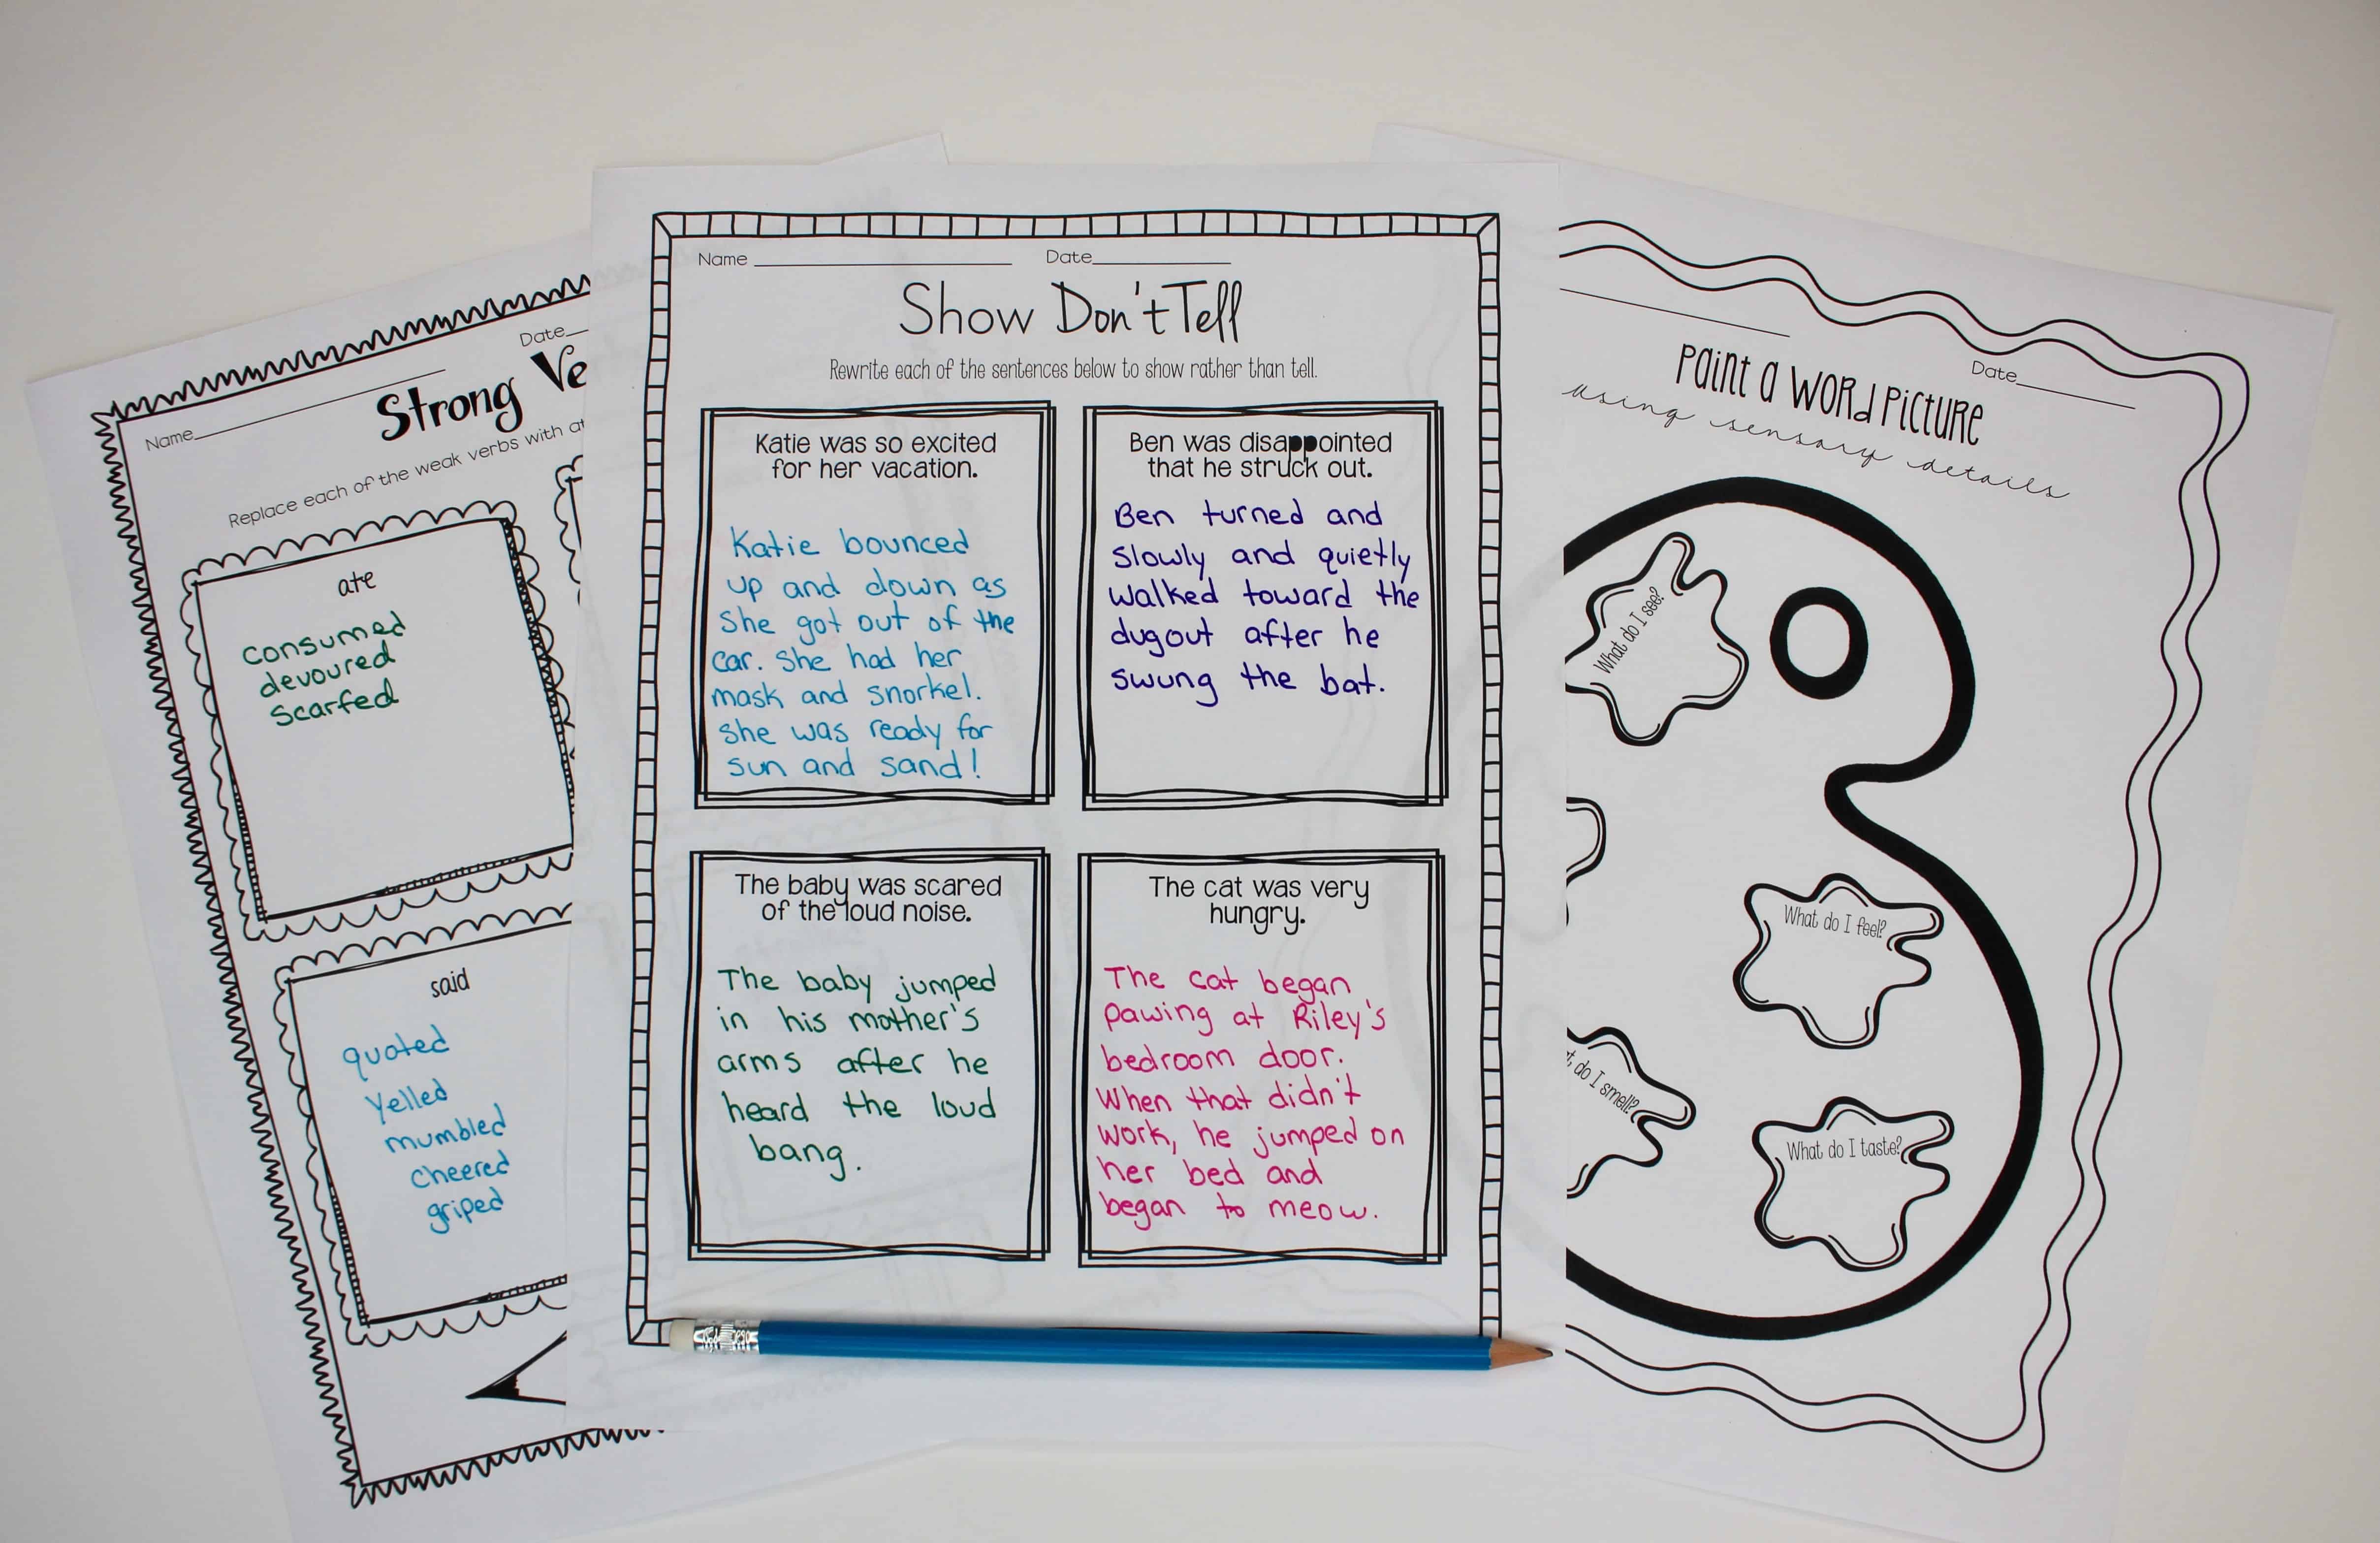 Name
Date
Strong Ve
Replace each of the weak verbs with at
ate
consumed
devoured
scarfed
said
quoted
Yelled
mumbled
cheered
griped
Name
Date
Show Don't Tell
Rewrite each of the sentences below to show rather than tell.
Katie was so excited
for her vacation.
Katie bounced
up and down as
she got out of the
car. She had her
mask and snorkel.
She was ready for
sun and sand!
Ben was disappointed
that he struck out.
Ben turned and
slowly and quietly
walked toward the
dugout after he
swung the bat.
The baby was scared
of the loud noise.
The baby jumped
in his mother's
arms after he
heard the loud
bang.
The cat was very
hungry.
The cat began
pawing at Riley's
bedroom door.
When that didn't
work, he jumped on
her bed and
began to meow.
Date
Paint a Word Picture
using sensory details
What do I see?
What do I feel?
t do I smell?
What do I taste?